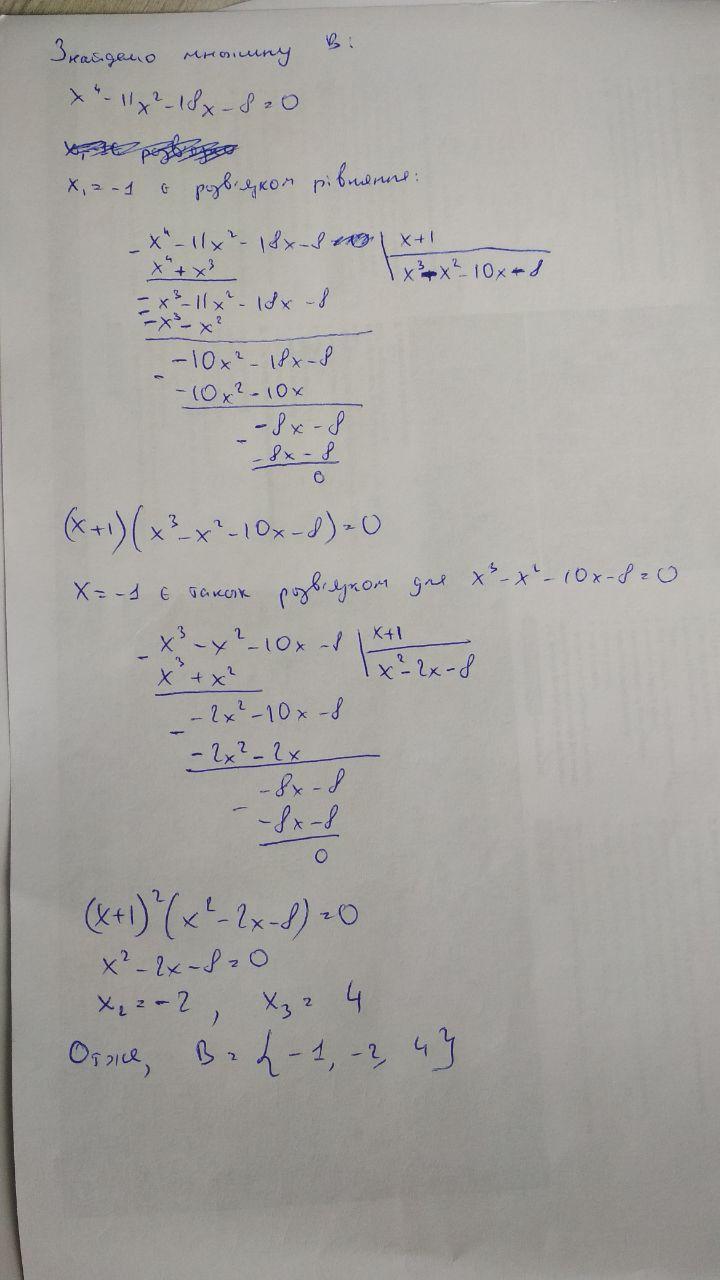 Знайдемо множину B:
x⁴ - 11x² - 18x - 8 = 0
x₁ = -1 є розв'язком рівняння:
- x⁴ - 11x² - 18x - 8 | x+1
x⁴ + x³ | x³ - x² - 10x - 8
- -x³ - 11x² - 18x - 8
-x³ - x²
- -10x² - 18x - 8
-10x² - 10x
- -8x - 8
-8x - 8
0
(x+1)(x³ - x² - 10x - 8) = 0
x = -1 є також розв'язком для x³ - x² - 10x - 8 = 0
- x³ - x² - 10x - 8 | x+1
x³ + x² | x² - 2x - 8
- -2x² - 10x - 8
-2x² - 2x
- -8x - 8
-8x - 8
0
(x+1)² (x² - 2x - 8) = 0
x² - 2x - 8 = 0
x₂ = -2, x₃ = 4
Отже, B = {-1, -2, 4}